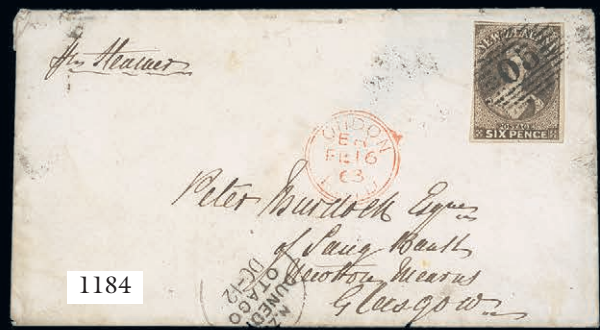 Per Steamer
NEW ZEALAND
POSTAGE
SIX PENCE
LONDON
FE 16
63
Peter Murdoch Esqre
of Bank
Newton Mearns
Glasgow
DUNEDIN
OTAGO
N.Z
1184